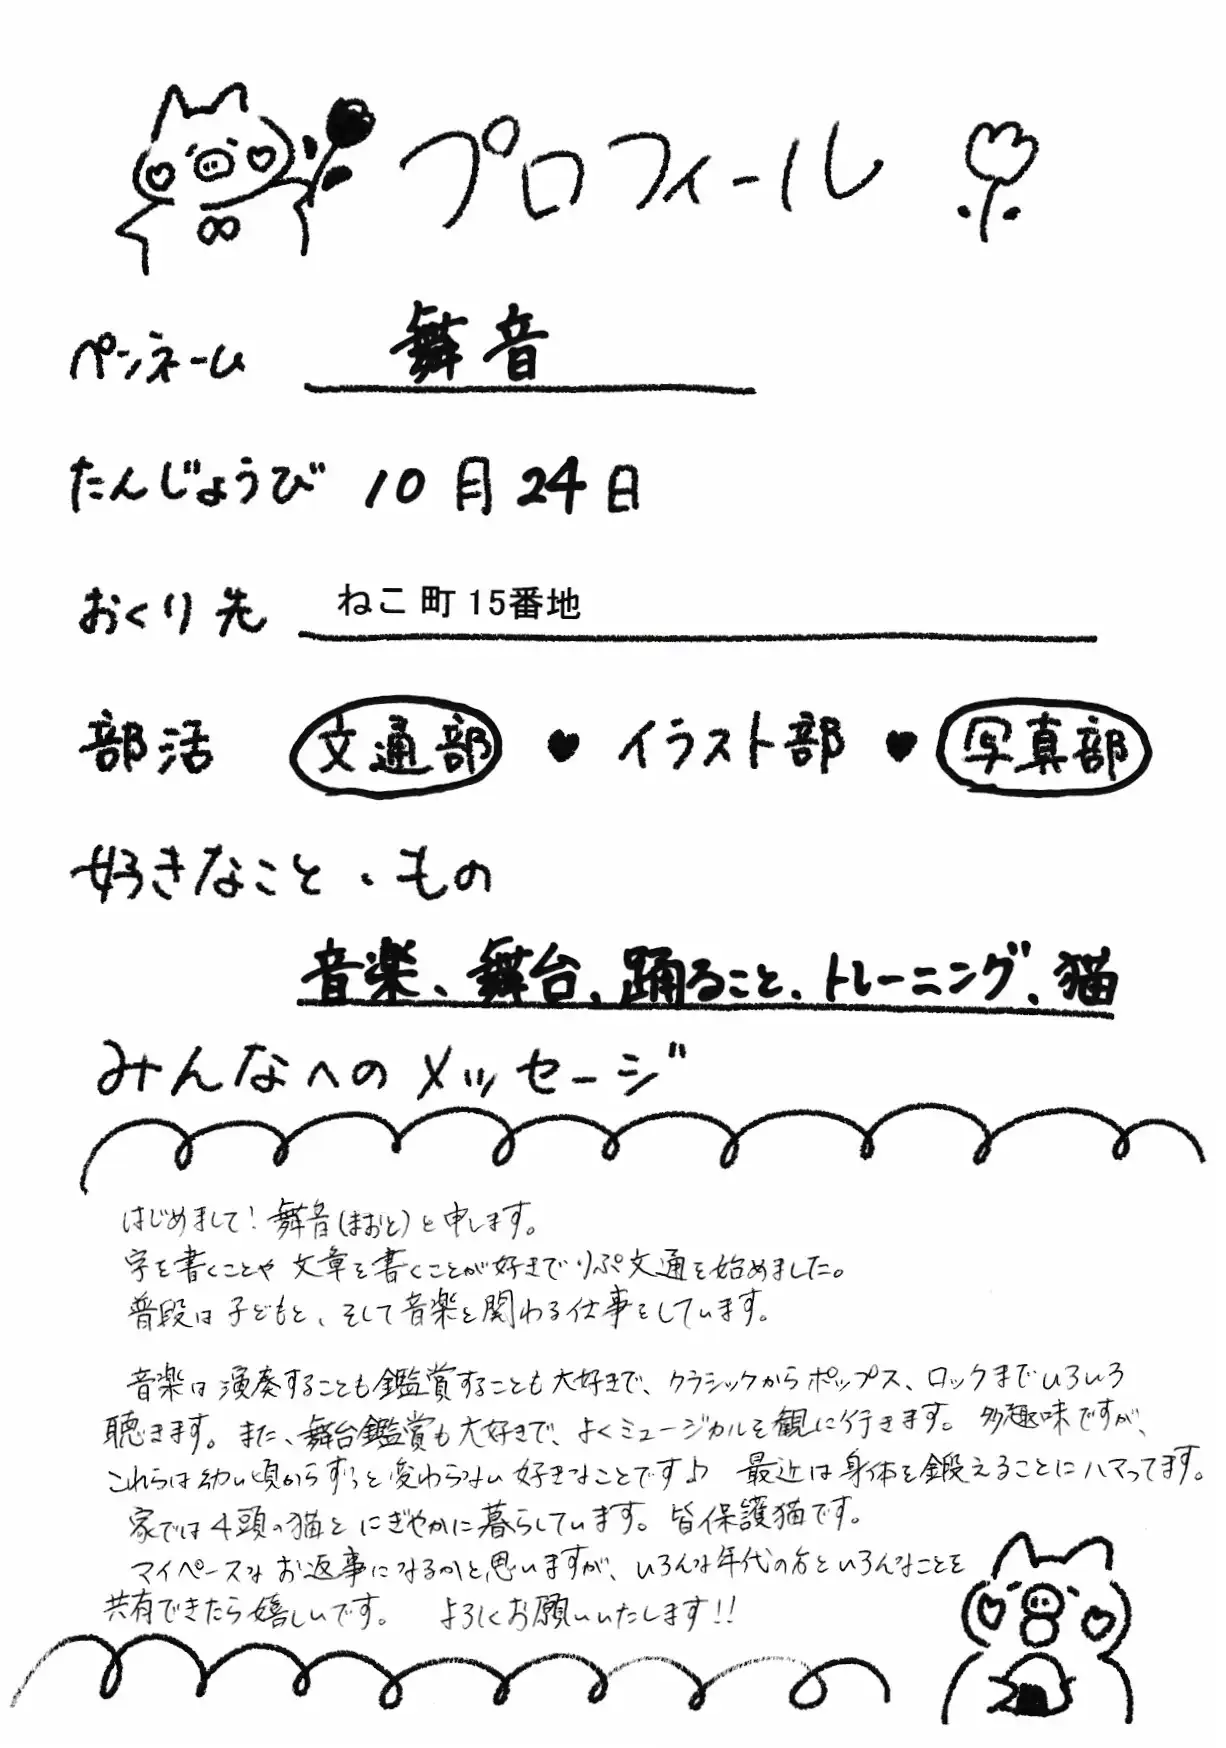 プロフィール
ペンネーム 舞音
たんじょうび 10月24日
おくり先 ねこ町15番地
部活 文通部 ♥ イラスト部 ♥ 写真部
好きなこと・もの
音楽、舞台、踊ること、トレーニング、猫
みんなへのメッセージ
はじめまして!舞音(まおと)と申します。
字を書くことや文章を書くことが好きでりぷ文通を始めました。
普段は子どもと、そして音楽と関わる仕事をしています。
音楽は演奏することも鑑賞することも大好きで、クラシックからポップス、ロックまでいろいろ
聴きます。また、舞台鑑賞も大好きで、よくミュージカルを観に行きます。多趣味ですが、
これらは幼い頃からずっと変わらない好きなことです♪ 最近は身体を鍛えることにハマってます。
家では4頭の猫とにぎやかに暮らしています。皆保護猫です。
マイペースなお返事になるかと思いますが、いろんな年代の方といろんなことを
共有できたら嬉しいです。 よろしくお願いいたします!!